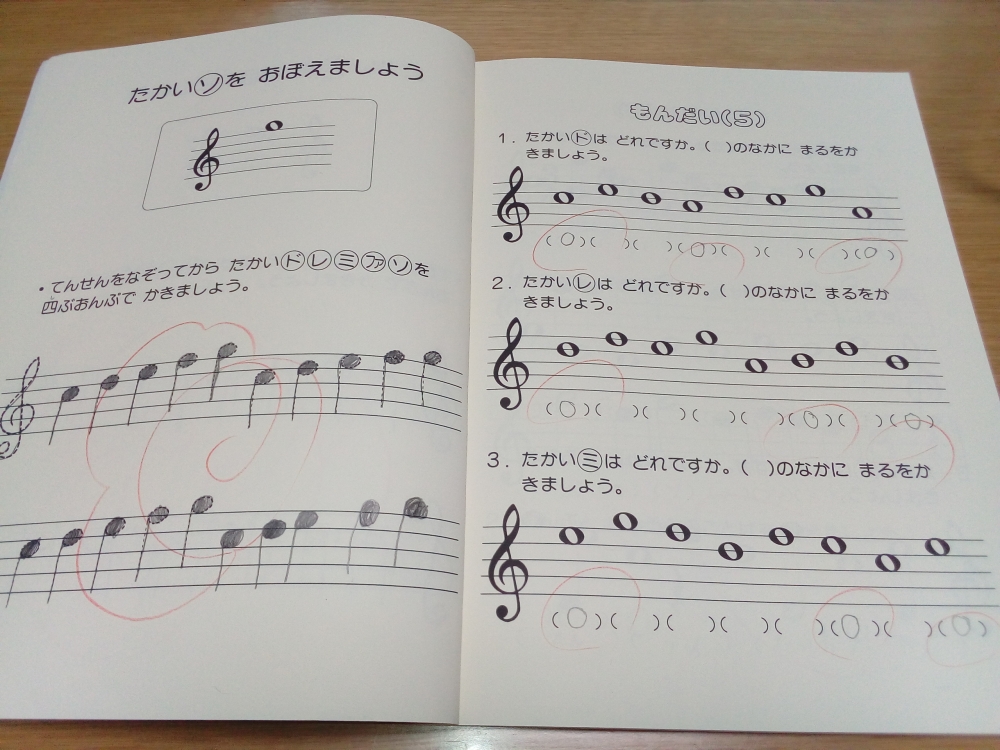 たかいソを おぼえましょう
・てんせんをなぞってから たかいドレミファソを
四ぶおんぷで かきましょう。
もんだい(5)
1. たかいドは どれですか。( )のなかに まるをか
きましょう。
(○)( )( )(○)( )( )( )(○)
2. たかいレは どれですか。( )のなかに まるをか
きましょう。
(○)( )( )( )( )(○)( )(○)
3. たかいミは どれですか。( )のなかに まるをか
きましょう。
(○)( )( )( )( )(○)( )(○)